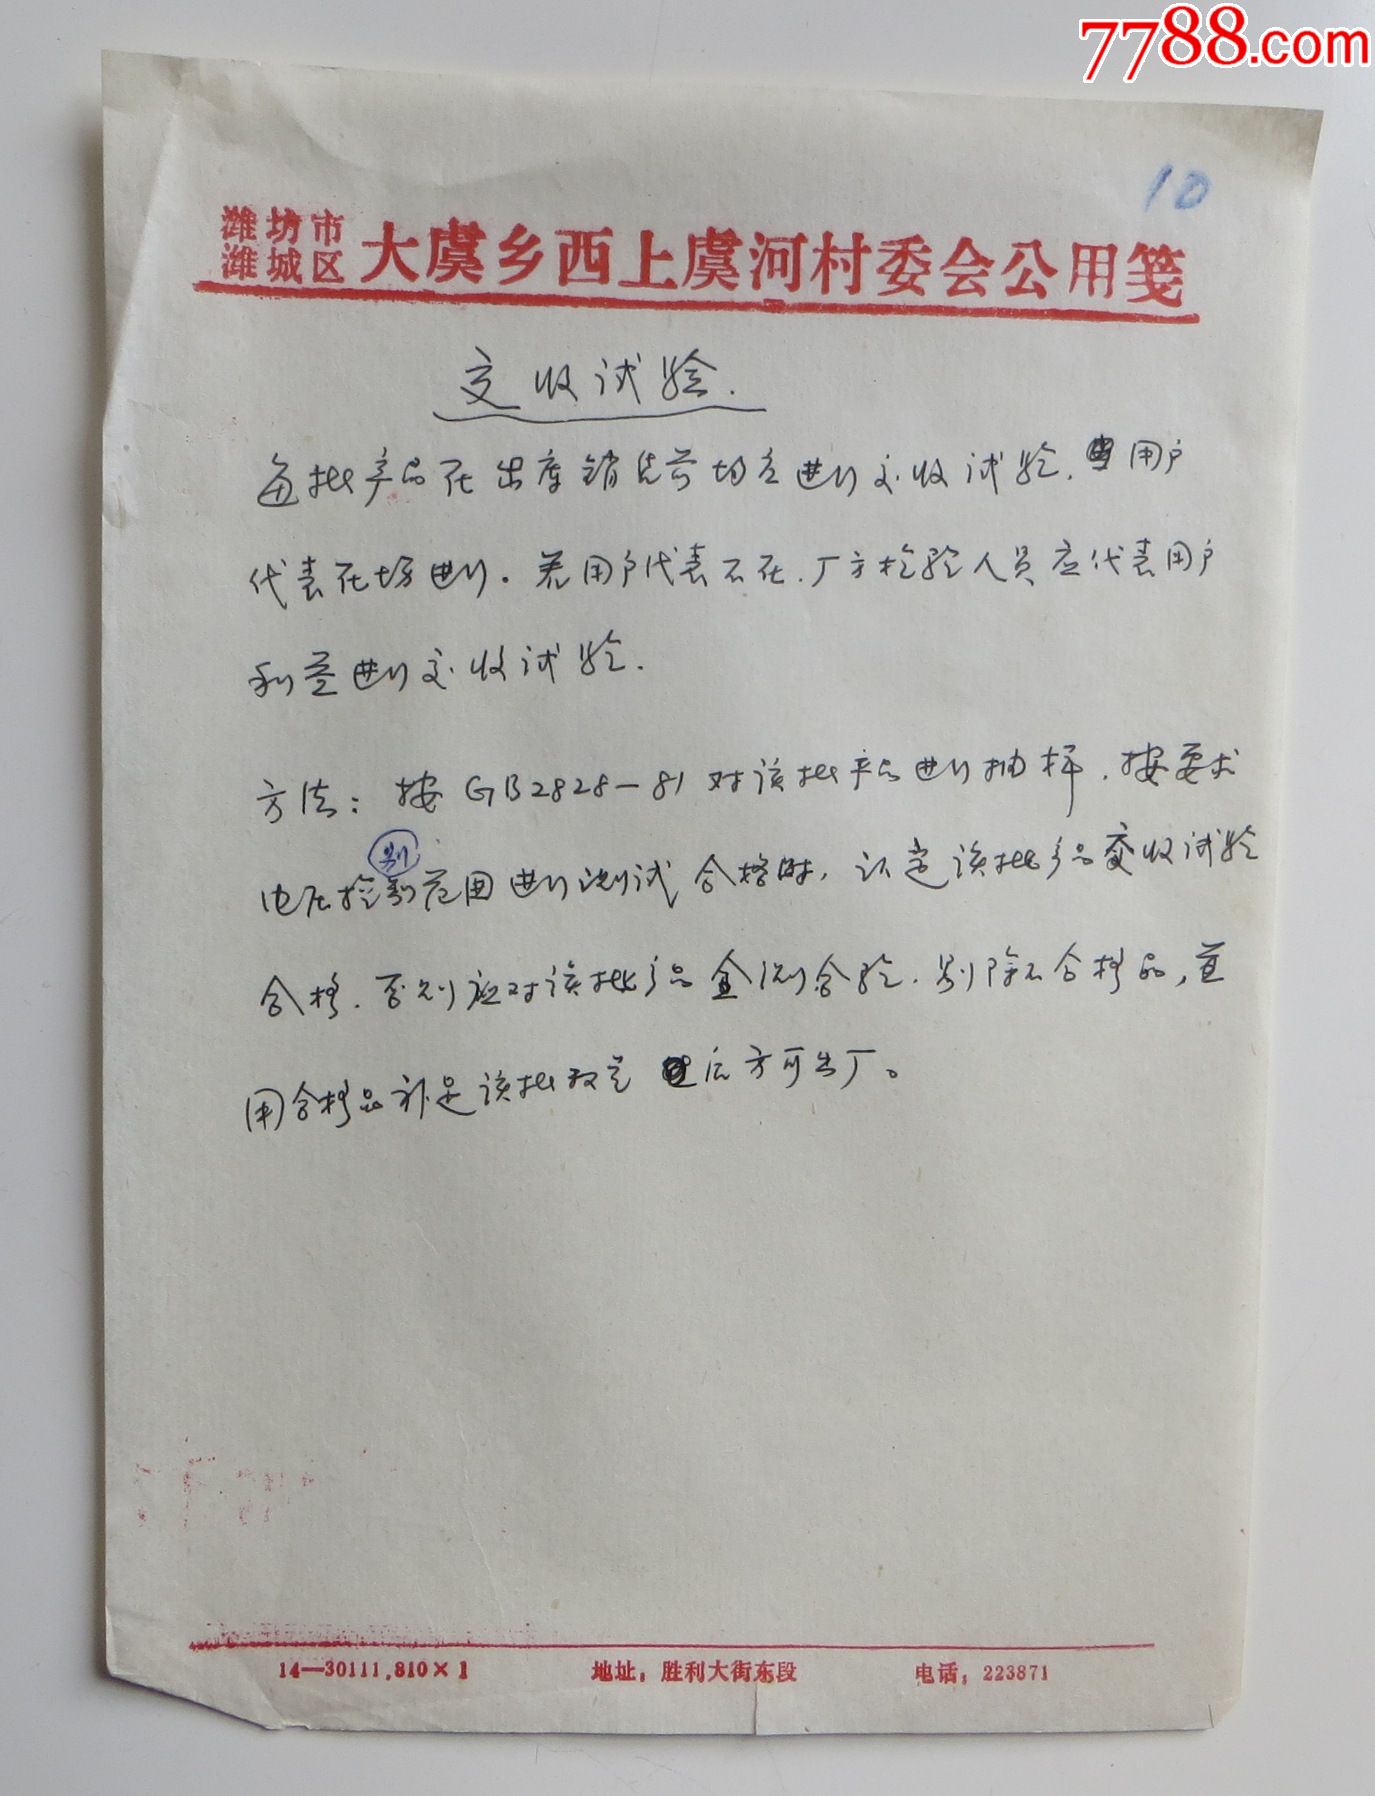 7788.com
10
潍坊市
潍城区
大虞乡西上虞河村委会公用笺
交收试验.
每批产品在出库销售前均应进行交收试验.用户
代表在场进行.若用户代表不在.厂方检验人员应代表用户
利益进行交收试验.
方法:按GB2828-81对该批产品进行抽样.按要求
别
电压检 范围进行测试合格时,认定该批产品交收试验
合格.否则应对该批产品全测 验.剔除不合格品,并
用合格品补足该批数定 后方可出厂。
14—30111.810×1
地址:胜利大街东段
电话:223871